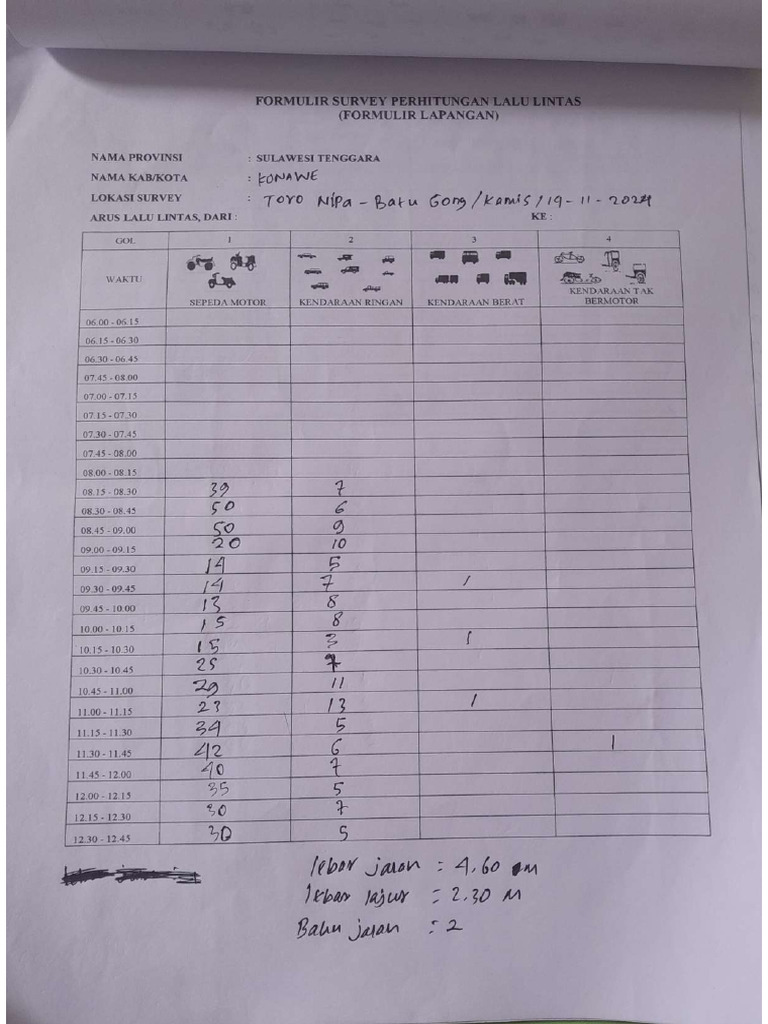 FORMULIR SURVEY PERHITUNGAN LALU LINTAS
(FORMULIR LAPANGAN)
NAMA PROVINSI : SULAWESI TENGGARA
NAMA KAB/KOTA : KONAWE
LOKASI SURVEY : Toro Nipa - Batu Gong / Kamis / 19-11-2024
ARUS LALU LINTAS, DARI : KE :
GOL 1 2 3 4
WAKTU SEPEDA MOTOR KENDARAAN RINGAN KENDARAAN BERAT KENDARAAN TAK BERMOTOR
06.00 - 06.15
06.15 - 06.30
06.30 - 06.45
07.45 - 08.00
07.00 - 07.15
07.15 - 07.30
07.30 - 07.45
07.45 - 08.00
08.00 - 08.15
08.15 - 08.30 39 7
08.30 - 08.45 50 6
08.45 - 09.00 50 9
09.00 - 09.15 20 10
09.15 - 09.30 14 5
09.30 - 09.45 14 7 1
09.45 - 10.00 13 8
10.00 - 10.15 15 8
10.15 - 10.30 15 3 1
10.30 - 10.45 25 7
10.45 - 11.00 29 11
11.00 - 11.15 23 13 1
11.15 - 11.30 34 5
11.30 - 11.45 42 6 1
11.45 - 12.00 40 7
12.00 - 12.15 35 5
12.15 - 12.30 30 7
12.30 - 12.45 30 5
lebar jalan : 4.60 m
lebar lajur : 2.30 M
Bahu jalan : 2